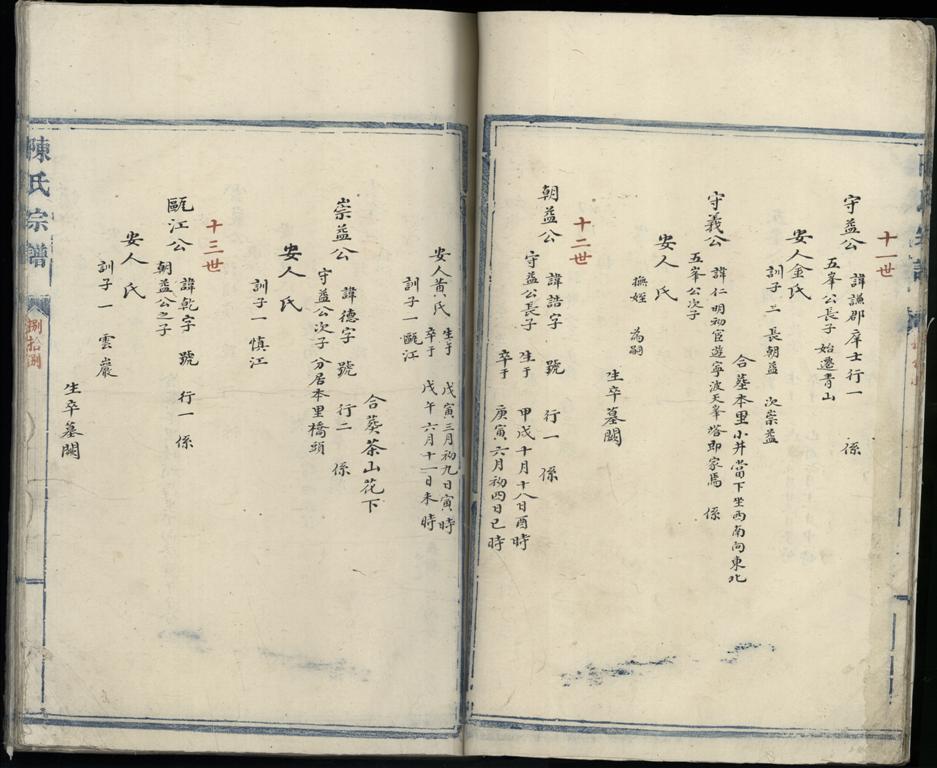 十一世
守益公 諱謙郡庠士行一 係
五峯公長子始遷青山
安人金氏
訓子二 長朝益 次崇益
合墓本里小井當下坐西南向東北
守義公 諱仁明初宦遊寧波天峯塔即家焉 係
五峯公次子
安人 氏
撫姪 為嗣
生卒墓闕
十二世
朝益公 諱誥字 號 行一 係
守益公長子 生于 甲戌十月十八日酉時
卒于 庚寅六月初四日巳時
安人黄氏 生于 戊寅三月初九日寅時
卒于 戊午六月十一日未時
訓子一甌江
合葬茶山花下
崇益公 諱德字 號 行二 係
守益公次子 分居本里橋頭
安人 氏
訓子一慎江
十三世
甌江公 諱乾字 號 行一 係
朝益公之子
安人 氏
訓子一 雲巖
生卒墓闕
陳氏宗譜
捌拾捌